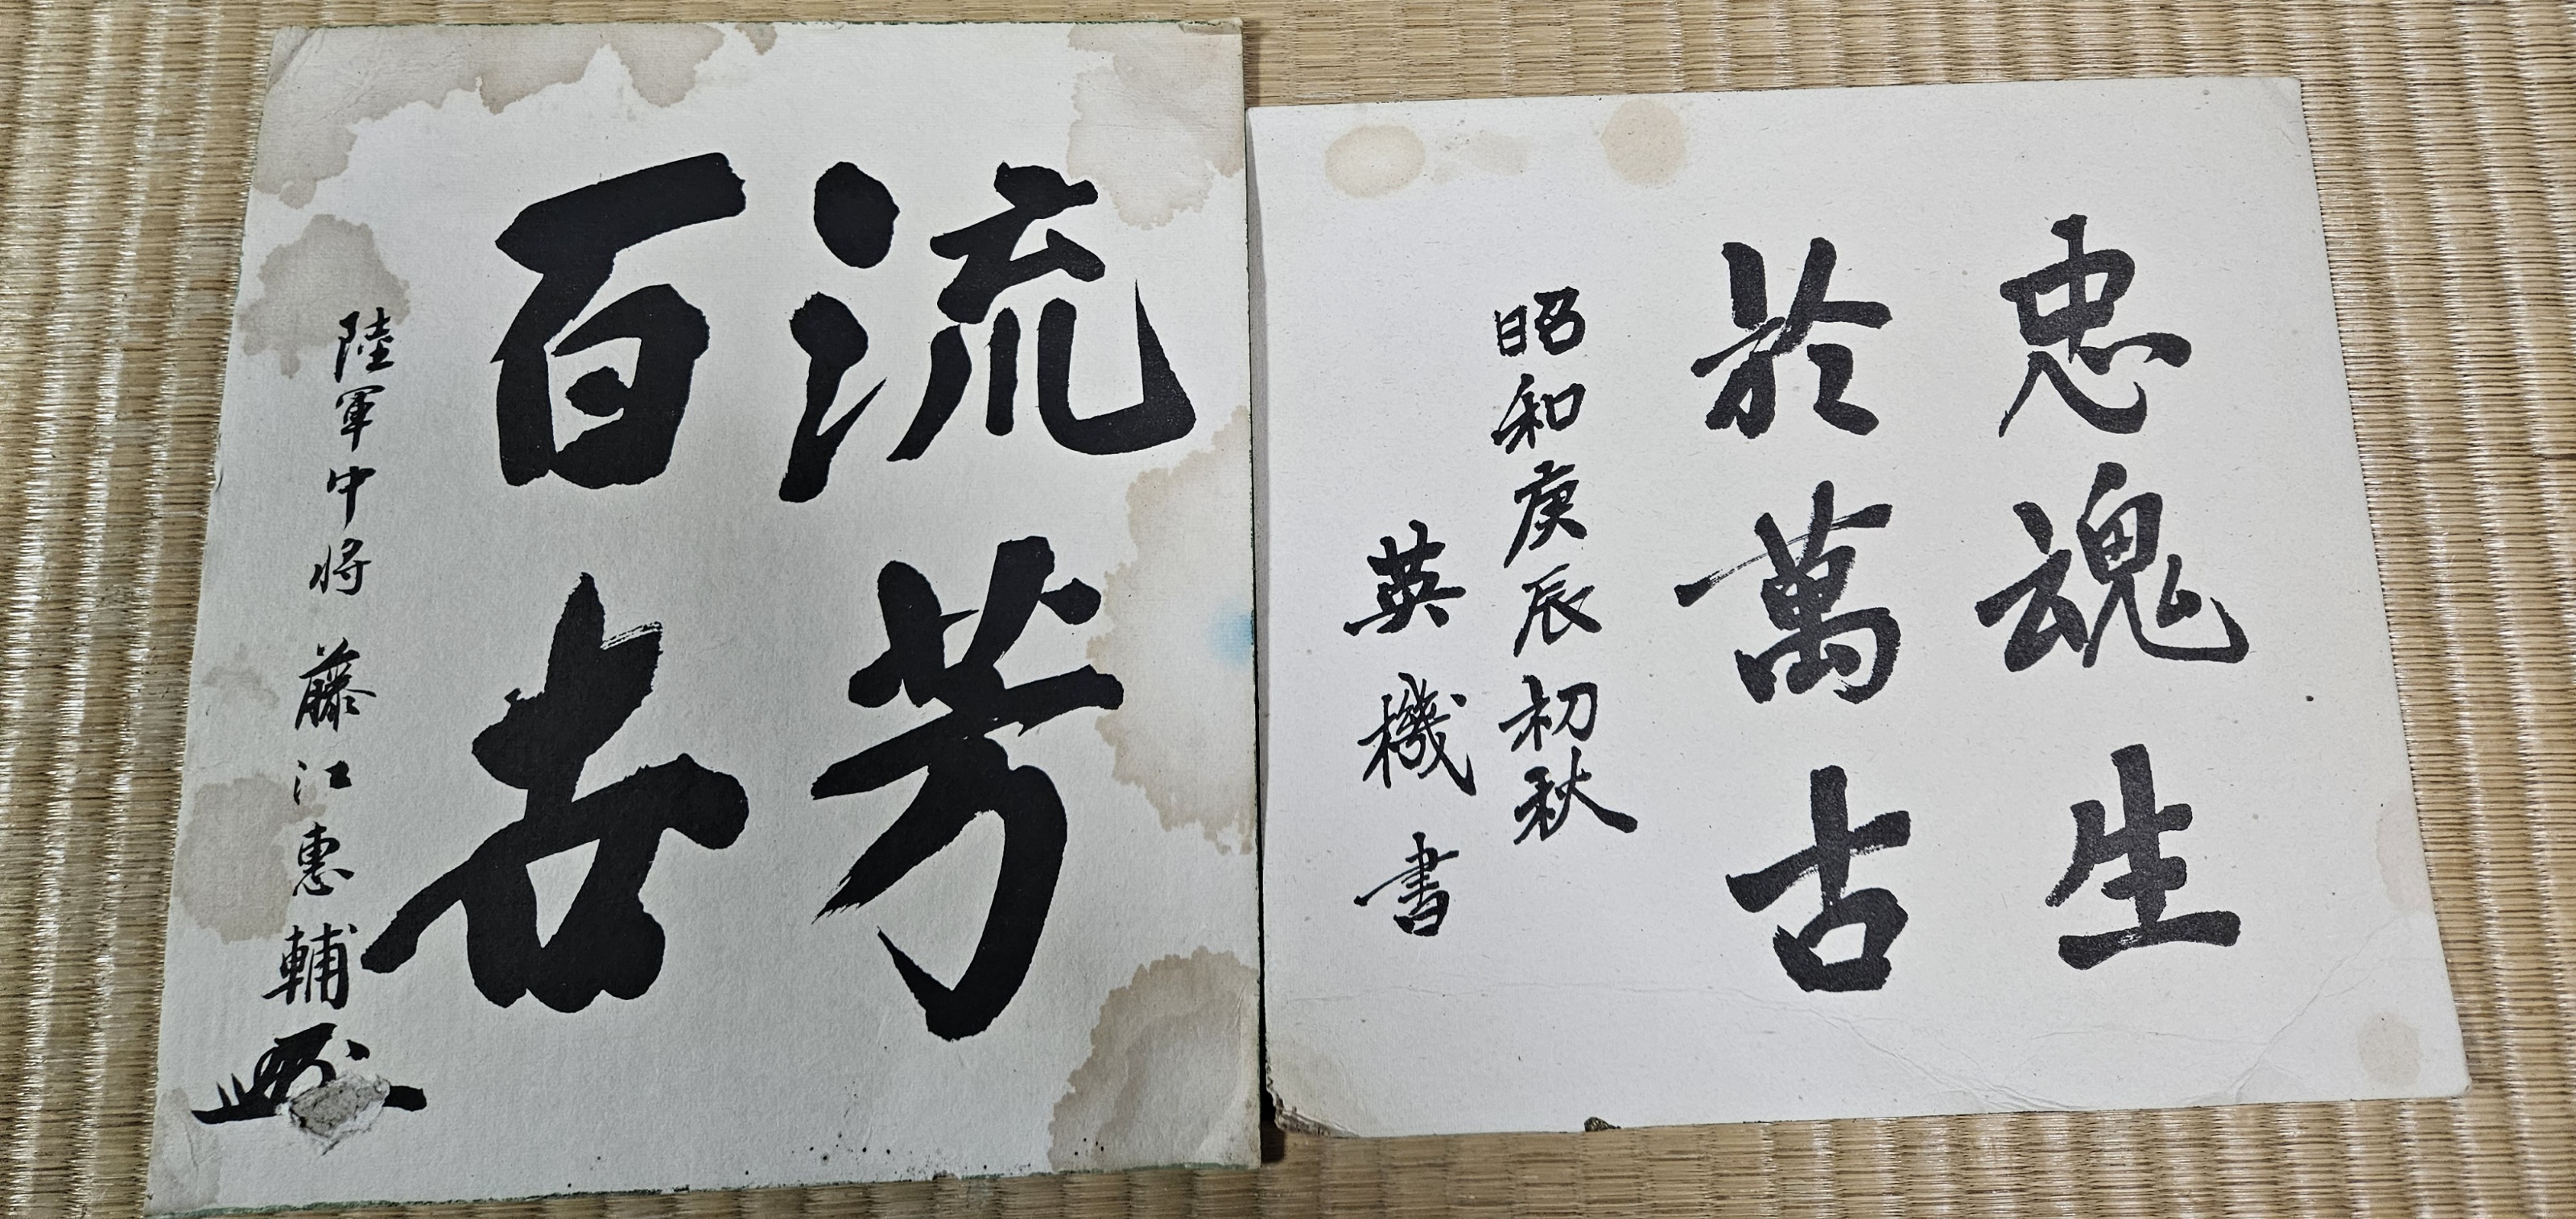 忠魂生
於萬古
昭和庚辰初秋
英機書
流芳
百世
陸軍中将 藤江惠輔